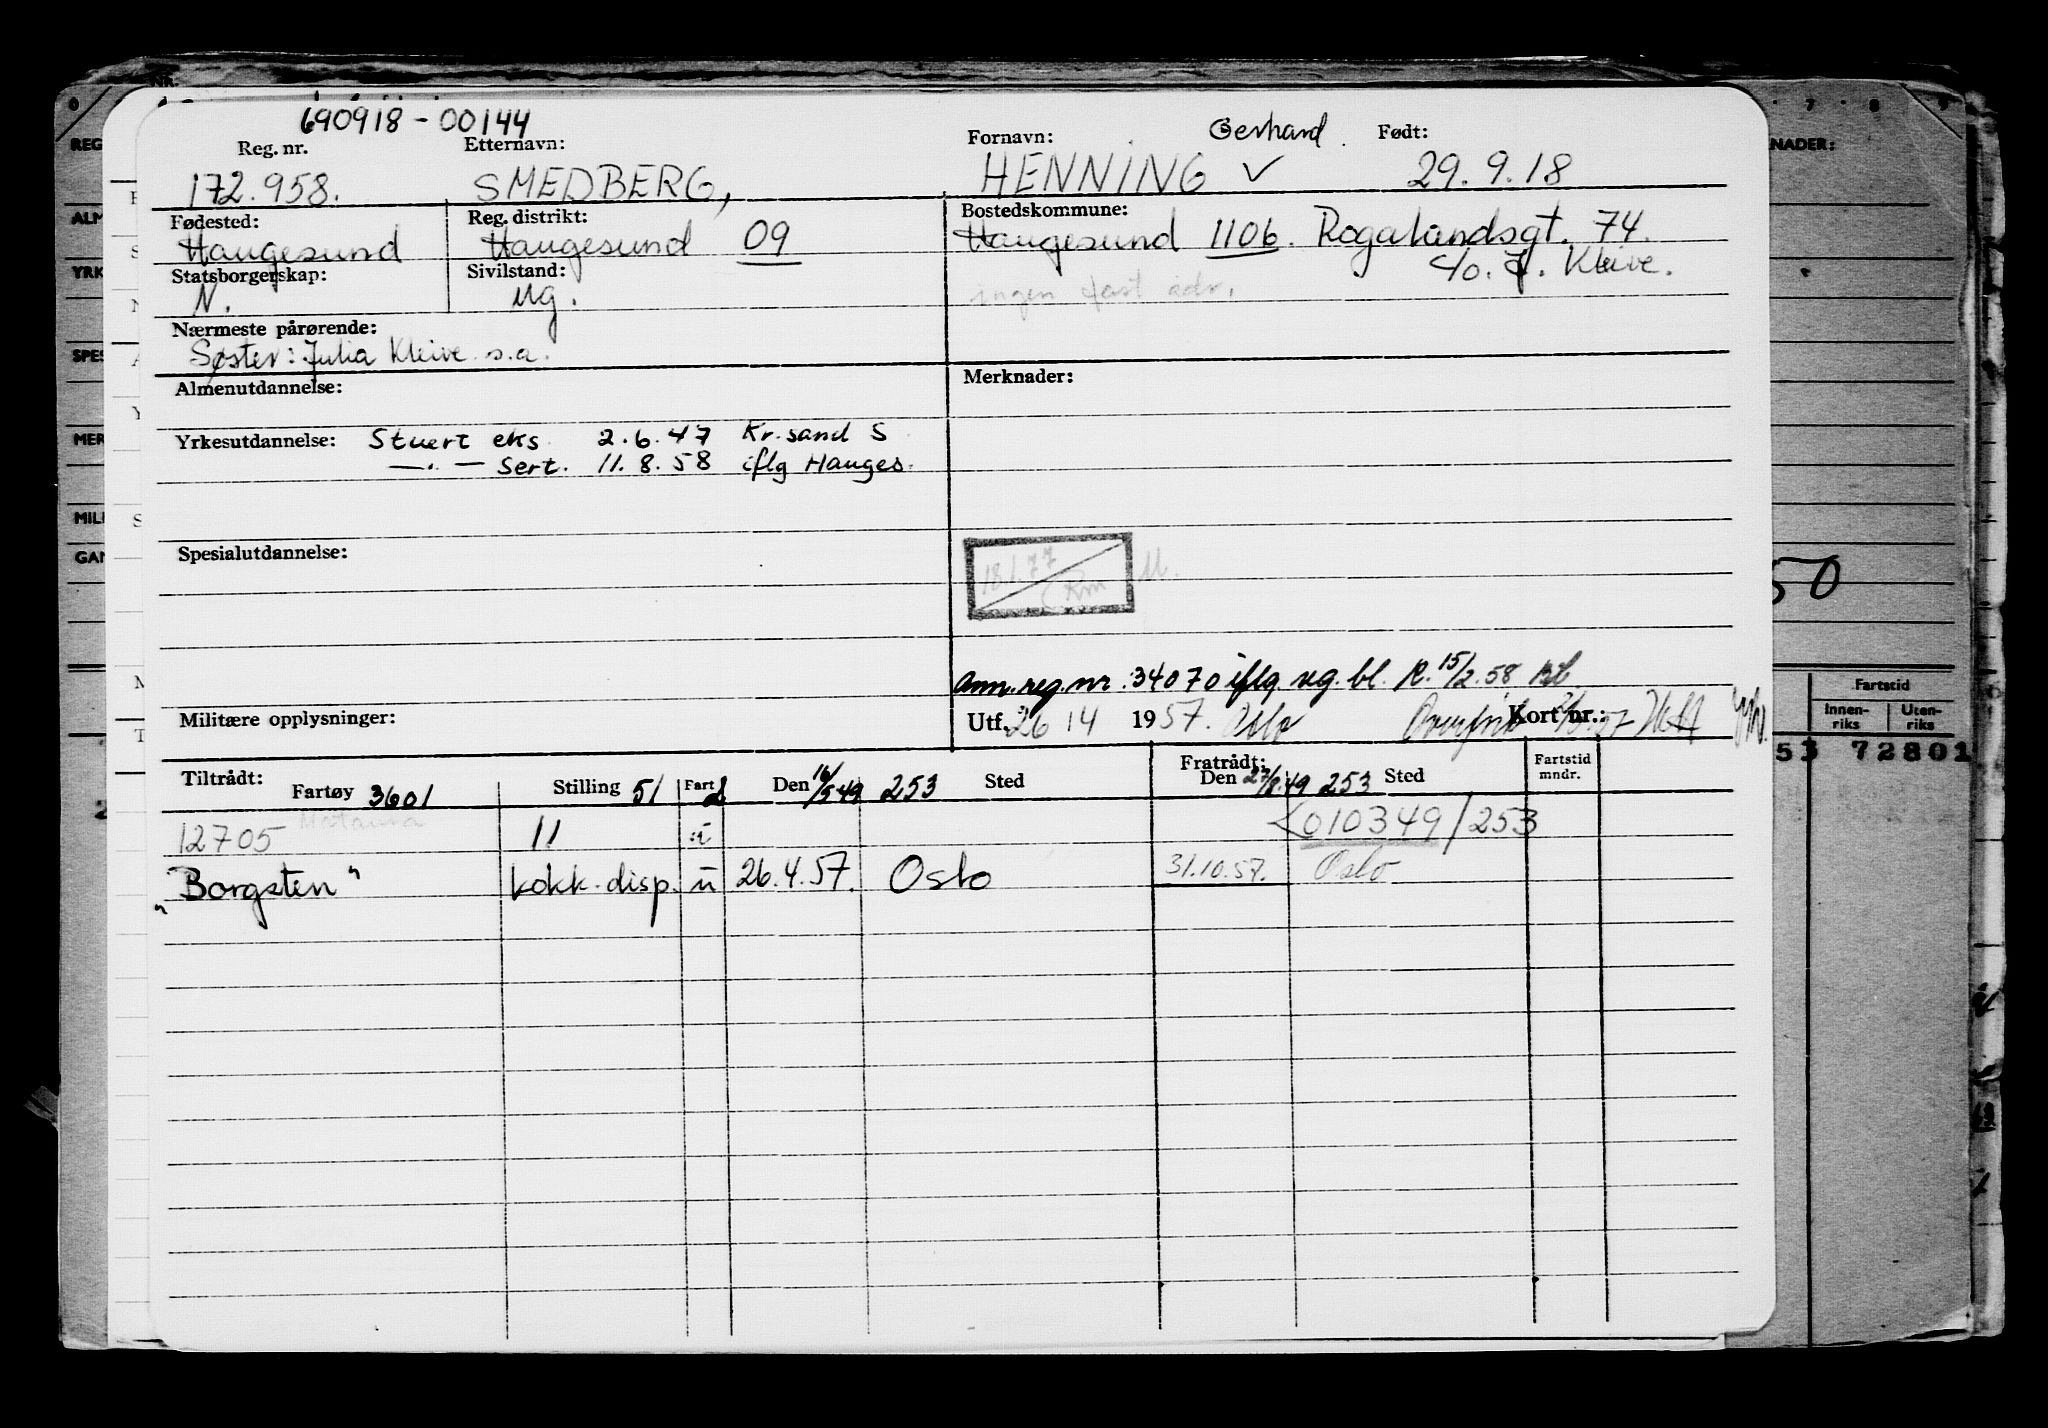 690918-00144
Reg. nr. Etternavn: Fornavn: Gerhard. Født:
172.958. SMEDBERG, HENNING ✓ 29.9.18
Fødested: Reg. distrikt: Bostedskommune:
Haugesund Haugesund 09 Haugesund 1106. Rogalandsgt. 74.
Statsborgerskap: Sivilstand: c/o. J. Kleive.
N. ug. ingen fast adr.
Nærmeste pårørende:
Søster: Julia Kleive s.a.
Almenutdannelse: Merknader:
Yrkesutdannelse: Stuert eks. 2.6.47 Kr.sand S
—"— sert. 11.8.58 iflg Hauges.
Spesialutdannelse:
18.1.77
Ann.reg.nr. 34070 iflg. ug. bl. R. 15/2.58
Militære opplysninger: Utf. 26/4 1957. Oslo Kort nr.:
Tiltrådt: Fratrådt: Fartstid mndr.
Fartøy 3601 Stilling 51 Fart 2 Den 16/5 49 253 Sted Den 27/8.49 253 Sted
12705 Mataura 11 ü <010349/253
"Borgsten" kokk.disp. ü 26.4.57. Oslo 31.10.57. Oslo
NR.
0
REG
ALM
YRK
SPES
MER
MILI
GAN
7 8 9
NADER:
50
Fartstid
Innen-riks Uten-riks
53 72801